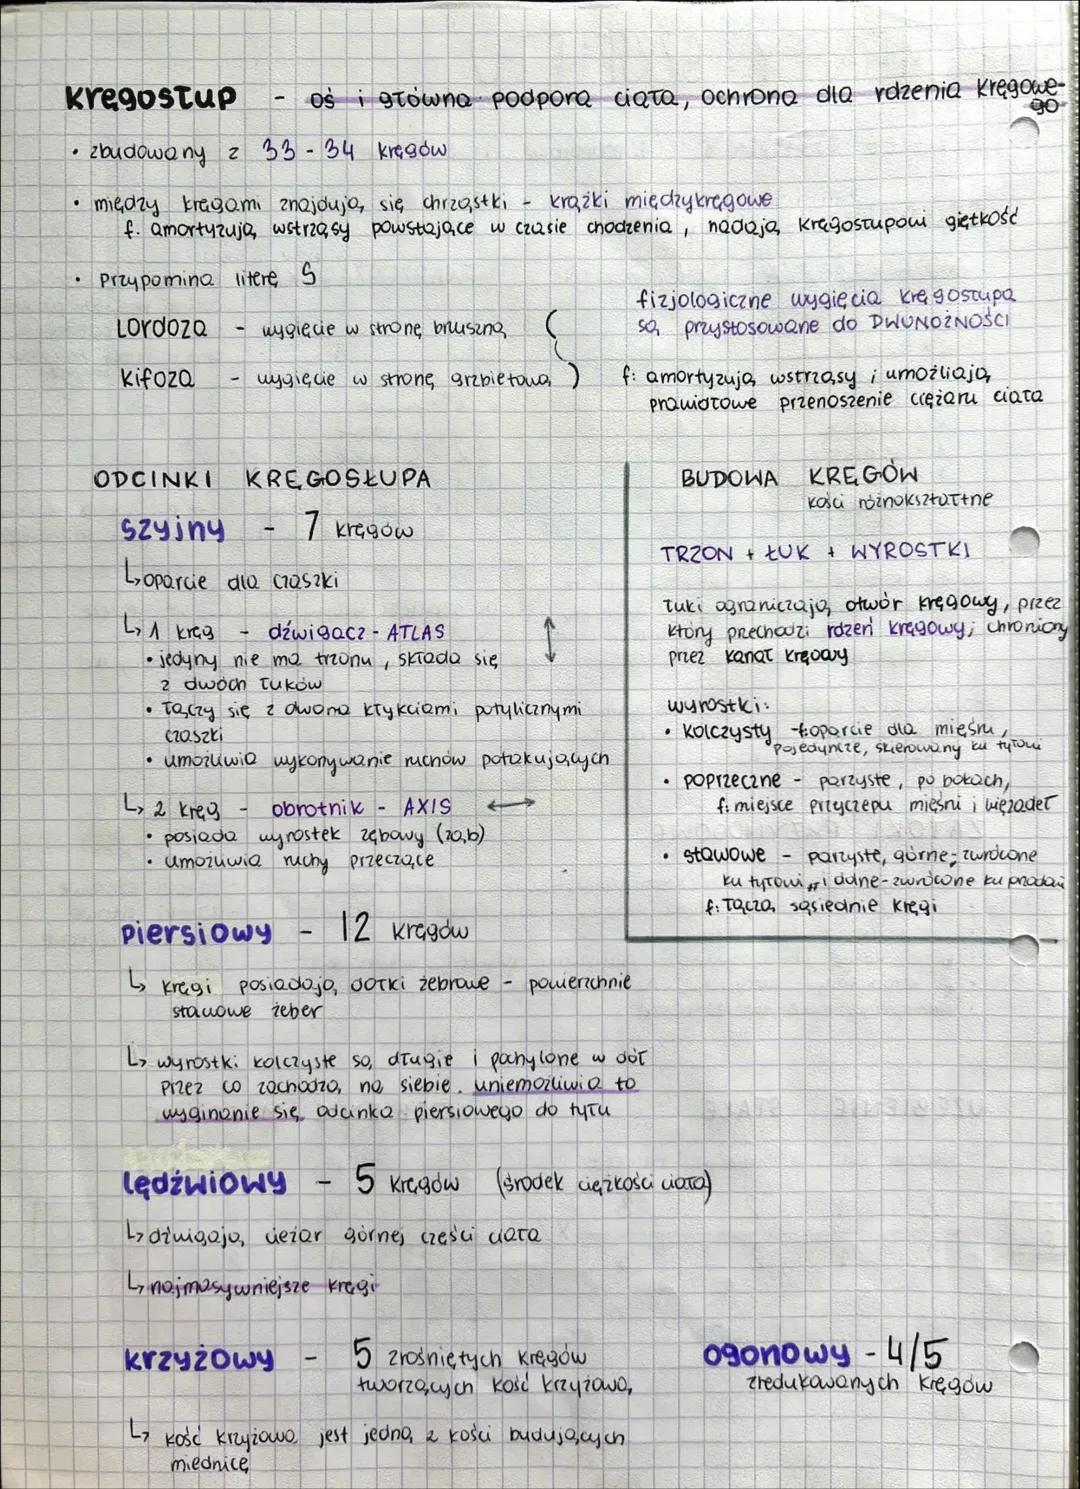 kręgosłup - oś i główna podpora ciała, ochrona dla rdzenia kręgowe-
go
• zbudowany z 33-34 kręgów
• między kręgami znajdują się chrząstki - krążki międzykręgowe
f. amortyzują wstrząsy powstające w czasie chodzenia, nadają kręgosłupowi giętkość
• Przypomina literę S
Lordoza - wygięcie w stronę brzuszną (
Kifoza - wygięcie w stronę grzbietową )
fizjologiczne wygięcia kręgosłupa
są przystosowane do DWUNOŻNOŚCI
f: amortyzują wstrząsy i umożliają
prawidłowe przenoszenie ciężaru ciała
ODCINKI KRĘGOSŁUPA
szyjny - 7 kręgów
↳ oparcie dla czaszki
↳ 1 kręg - dźwigacz - ATLAS ↕
• jedyny nie ma trzonu, składa się
z dwóch łuków
• łączy się z dwoma kłykciami potylicznymi
czaszki
• umożliwia wykonywanie ruchów potakujących
↳ 2 kręg - obrotnik - AXIS ↔
• posiada wyrostek zębowy (ząb)
• umożliwia ruchy przeczące
piersiowy - 12 kręgów
↳ kręgi posiadają dołki żebrowe - powierzchnie
stawowe żeber
↳ wyrostki kolczyste są długie i pochylone w dół
przez co zachodzą na siebie. uniemożliwia to
wyginanie się odcinka piersiowego do tyłu
lędźwiowy - 5 kręgów (środek ciężkości ciała)
↳ dźwigają ciężar górnej części ciała
↳ najmasywniejsze kręgi
krzyżowy - 5 zrośniętych kręgów
tworzących kość krzyżową
↳ kość krzyżowa jest jedną z kości budujących
miednicę
BUDOWA KRĘGÓW
kości różnokształtne
TRZON + ŁUK + WYROSTKI
łuki ograniczają otwór kręgowy, przez
który przechodzi rdzeń kręgowy; chroniony
przez kanał kręgowy
wyrostki:
• kolczysty - f: oparcie dla mięśni,
pojedyncze, skierowany ku tyłowi
• poprzeczne - parzyste, po bokach,
f: miejsce przyczepu mięśni i więzadeł
• stawowe - parzyste, górne - zwrócone
ku tyłowi, i dolne - zwrócone ku przodowi
f: łączą sąsiednie kręgi
ogonowy - 4/5
zredukowanych kręgów